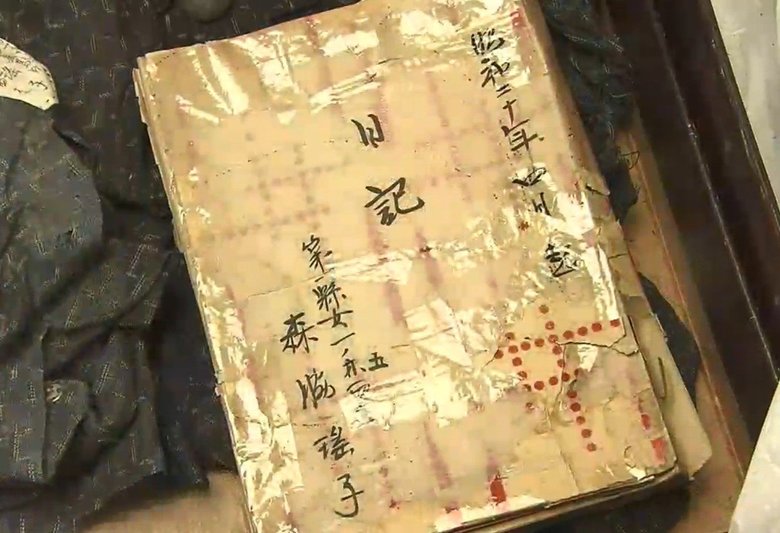 昭和二十年四月起
日記
第一縣女一年五
森脇瑶子